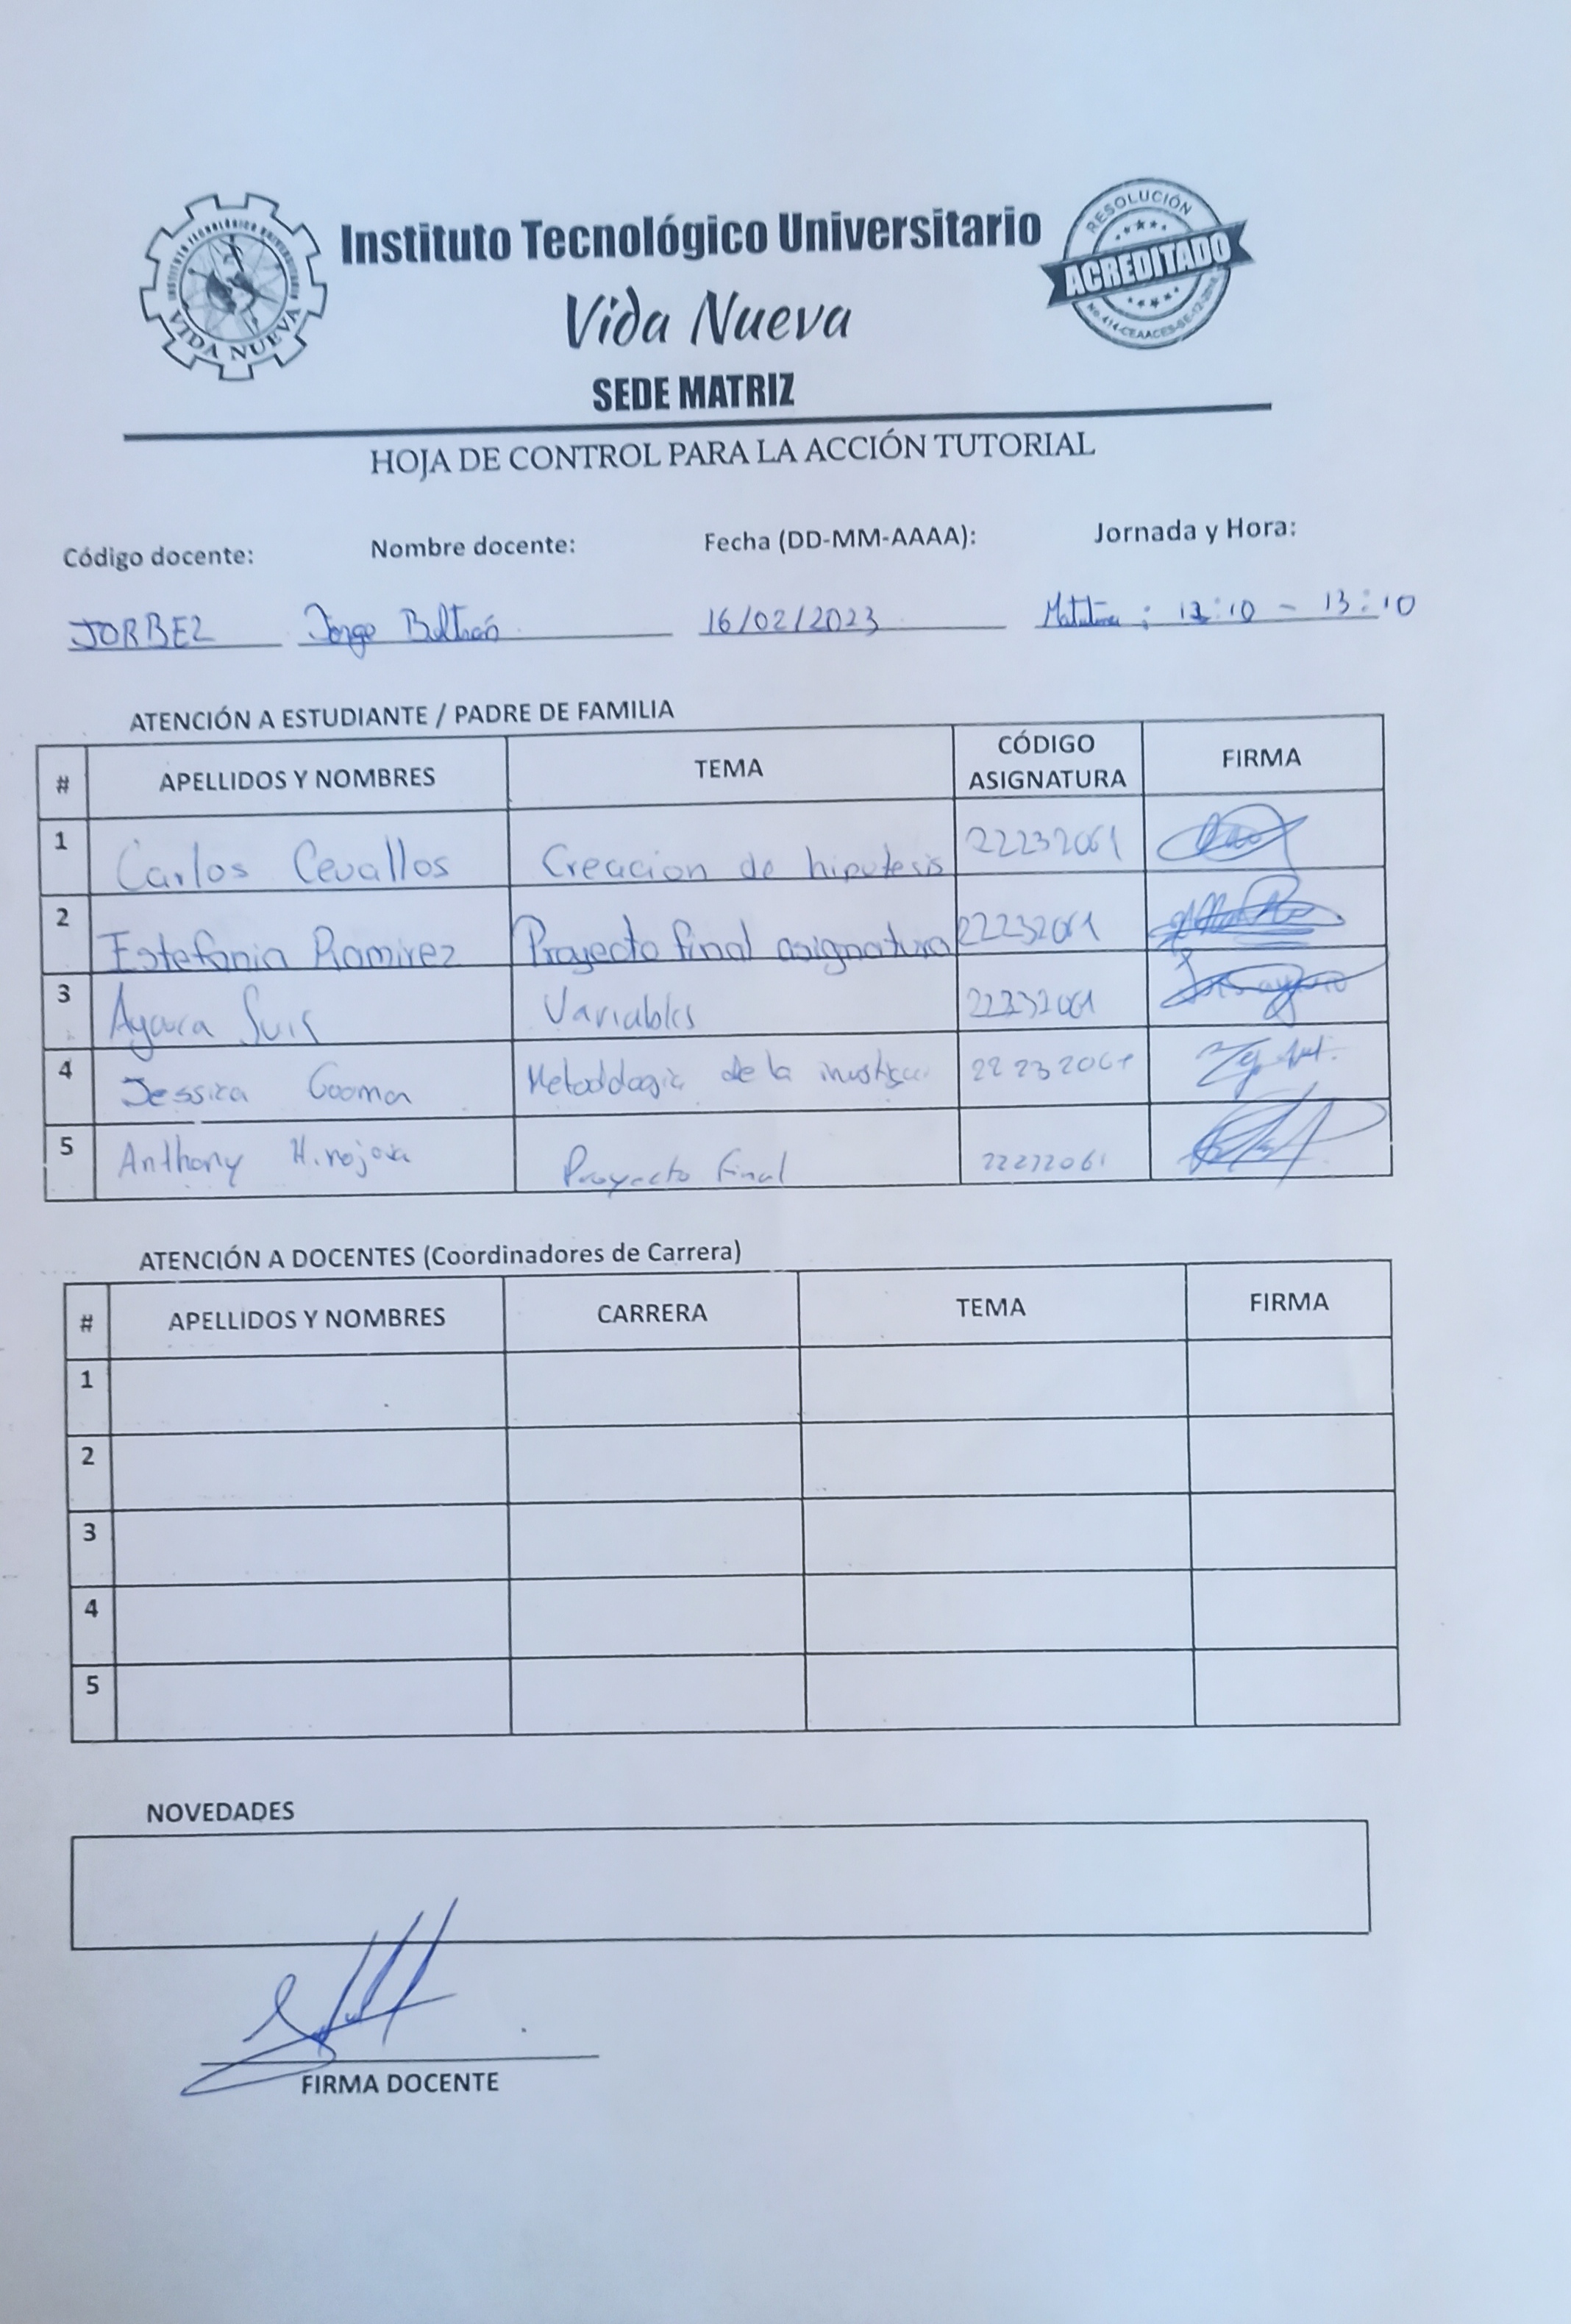 INSTITUTO TECNOLÓGICO UNIVERSITARIO
VIDA NUEVA
Instituto Tecnológico Universitario
Vida Nueva
SEDE MATRIZ
RESOLUCIÓN
ACREDITADO
HOJA DE CONTROL PARA LA ACCIÓN TUTORIAL
Código docente: Nombre docente: Fecha (DD-MM-AAAA): Jornada y Hora:
JORBEZ Jorge Beltrán 16/02/2023 : 12:10 - 13:10
ATENCIÓN A ESTUDIANTE / PADRE DE FAMILIA
# APELLIDOS Y NOMBRES TEMA CÓDIGO ASIGNATURA FIRMA
1 Carlos Cevallos Creacion de hipotesis 22232061
2 Estefania Ramirez Proyecto final asignatura 22232061
3 Variables 22232061
4 Jessica Metodologia de la 22232061
5 Anthony Hinojosa Proyecto Final
ATENCIÓN A DOCENTES (Coordinadores de Carrera)
# APELLIDOS Y NOMBRES CARRERA TEMA FIRMA
1
2
3
4
5
NOVEDADES
FIRMA DOCENTE